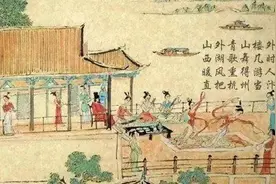 山外青山楼外
西湖歌舞几时
暖风熏得游人
直把杭州当汴